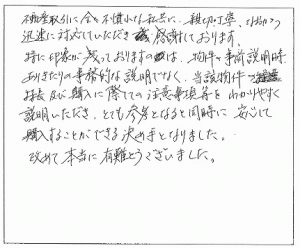 不動産取引に全く不慣れな私共に、親切、丁寧、なおかつ
迅速に対応していただき感謝しております。
特に印象が残っておりますのは、物件の事前説明時
ありきたりの事務的な説明でなく、当該物件の
特長及び購入に際しての注意事項等をわかりやすく
説明いただき、とても参考となると同時に安心して
購入することができる決め手となりました。
改めて本当に有難とうございました。